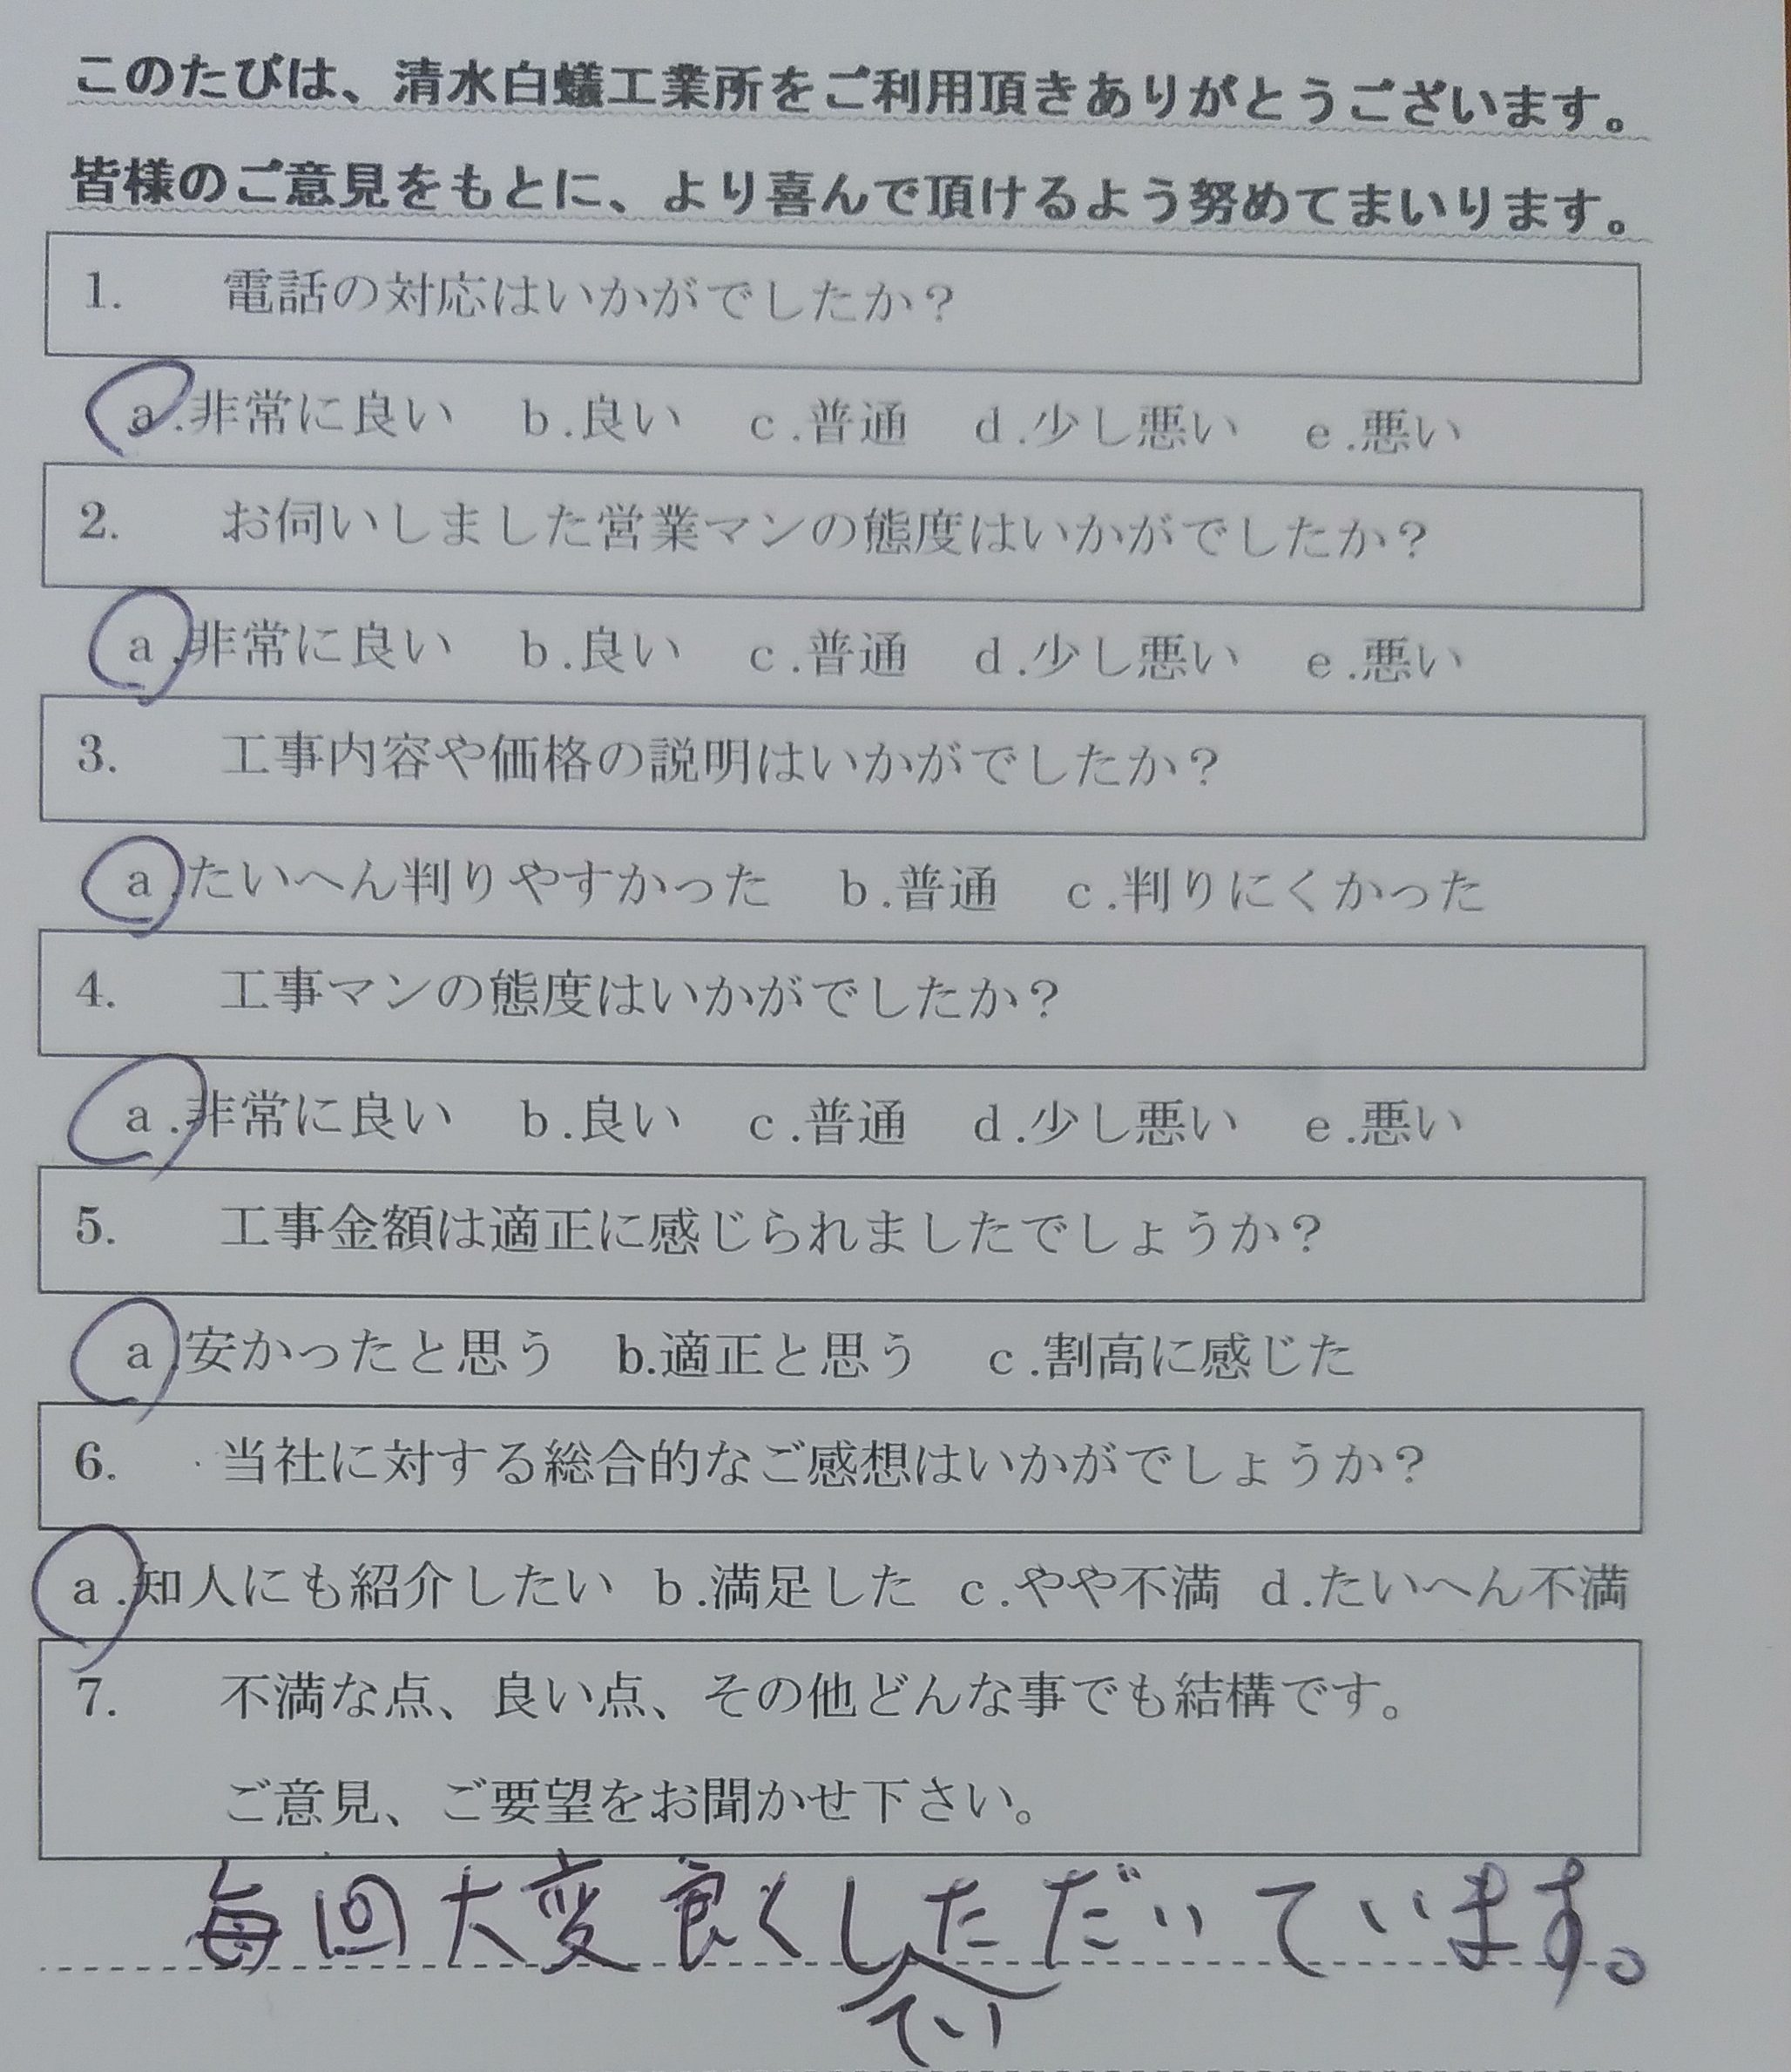 このたびは、清水白蟻工業所をご利用頂きありがとうございます。
皆様のご意見をもとに、より喜んで頂けるよう努めてまいります。
1. 電話の対応はいかがでしたか？
a.非常に良い b.良い c.普通 d.少し悪い e.悪い
2. お伺いしました営業マンの態度はいかがでしたか？
a.非常に良い b.良い c.普通 d.少し悪い e.悪い
3. 工事内容や価格の説明はいかがでしたか？
a.たいへん判りやすかった b.普通 c.判りにくかった
4. 工事マンの態度はいかがでしたか？
a.非常に良い b.良い c.普通 d.少し悪い e.悪い
5. 工事金額は適正に感じられましたでしょうか？
a.安かったと思う b.適正と思う c.割高に感じた
6. 当社に対する総合的なご感想はいかがでしょうか？
a.知人にも紹介したい b.満足した c.やや不満 d.たいへん不満
7. 不満な点、良い点、その他どんな事でも結構です。
ご意見、ご要望をお聞かせ下さい。
毎回大変良くしただいています。
てい